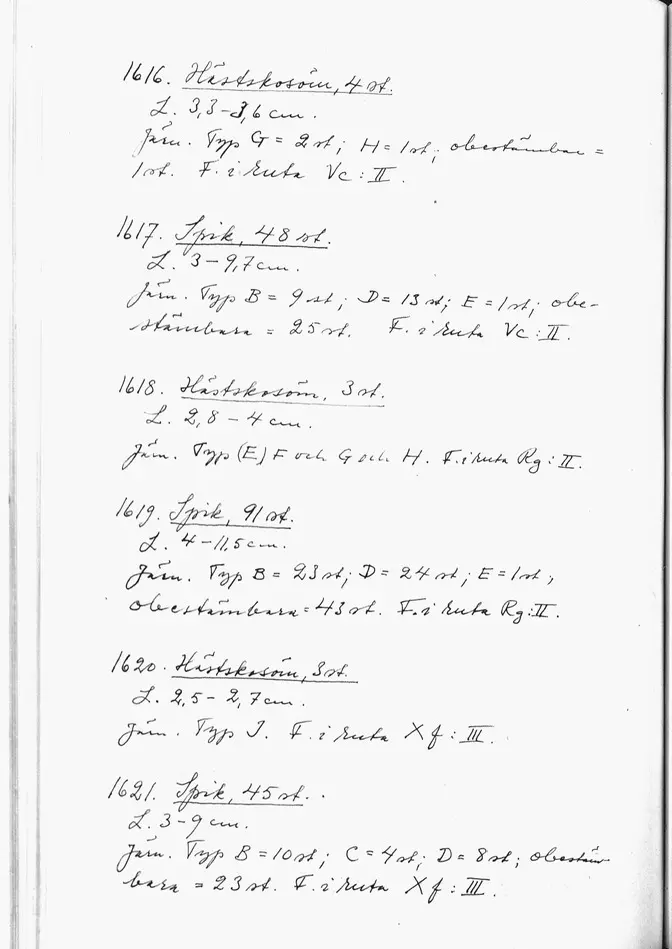 1616. Hästskosöm, 4 st.
L. 3,3-3,6 cm.
Järn. Typ G = 2 st; H = 1 st; obestämbar =
1 st. F. i ruta Vc : II.
1617. Spik, 48 st.
L. 3 - 9,7 cm.
Järn. Typ B = 9 st; D = 13 st; E = 1 st; obe-
stämbara = 25 st. F. i ruta Vc : II.
1618. Hästskosöm, 3 st.
L. 2,8 - 4 cm.
Järn. Typ (E) F och G och H. F. i ruta Rg : II.
1619. Spik, 91 st.
L. 4 - 11,5 cm.
Järn. Typ B = 23 st; D = 24 st; E = 1 st,
obestämbara = 43 st. F. i ruta Rg : II.
1620. Hästskosöm, 3 st.
L. 2,5 - 2,7 cm.
Järn. Typ I. F. i ruta Xf : III.
1621. Spik, 45 st.
L. 3-9 cm.
Järn. Typ B = 10 st; C = 4 st; D = 8 st; obestäm
bara = 23 st. F. i ruta Xf : III.